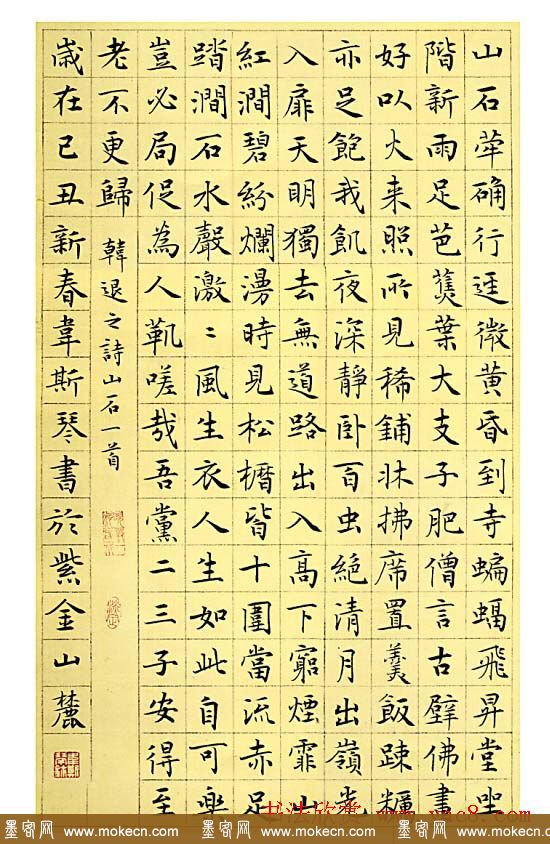 山石犖确行逕微黃昏到寺蝙蝠飛昇堂坐
階新雨足芭蕉葉大支子肥僧言古壁佛畫
好以火来照所見稀鋪牀拂席置羹飯踈糲
亦足飽我飢夜深靜卧百虫絕清月出嶺光
入扉天明獨去無道路出入高下窮煙霏山
紅澗碧紛爛漫時見松櫪皆十圍當流赤足
踏澗石水聲激〻風生衣人生如此自可樂
豈必局促為人鞿嗟哉吾黨二三子安得至
老不更歸 韓退之詩山石一首
歲在己丑新春韋斯琴書於紫金山麓
书法欣赏
墨客网 www.mokecn.com 墨客网 www.mokecn.com 墨客网 www.mokecn.com